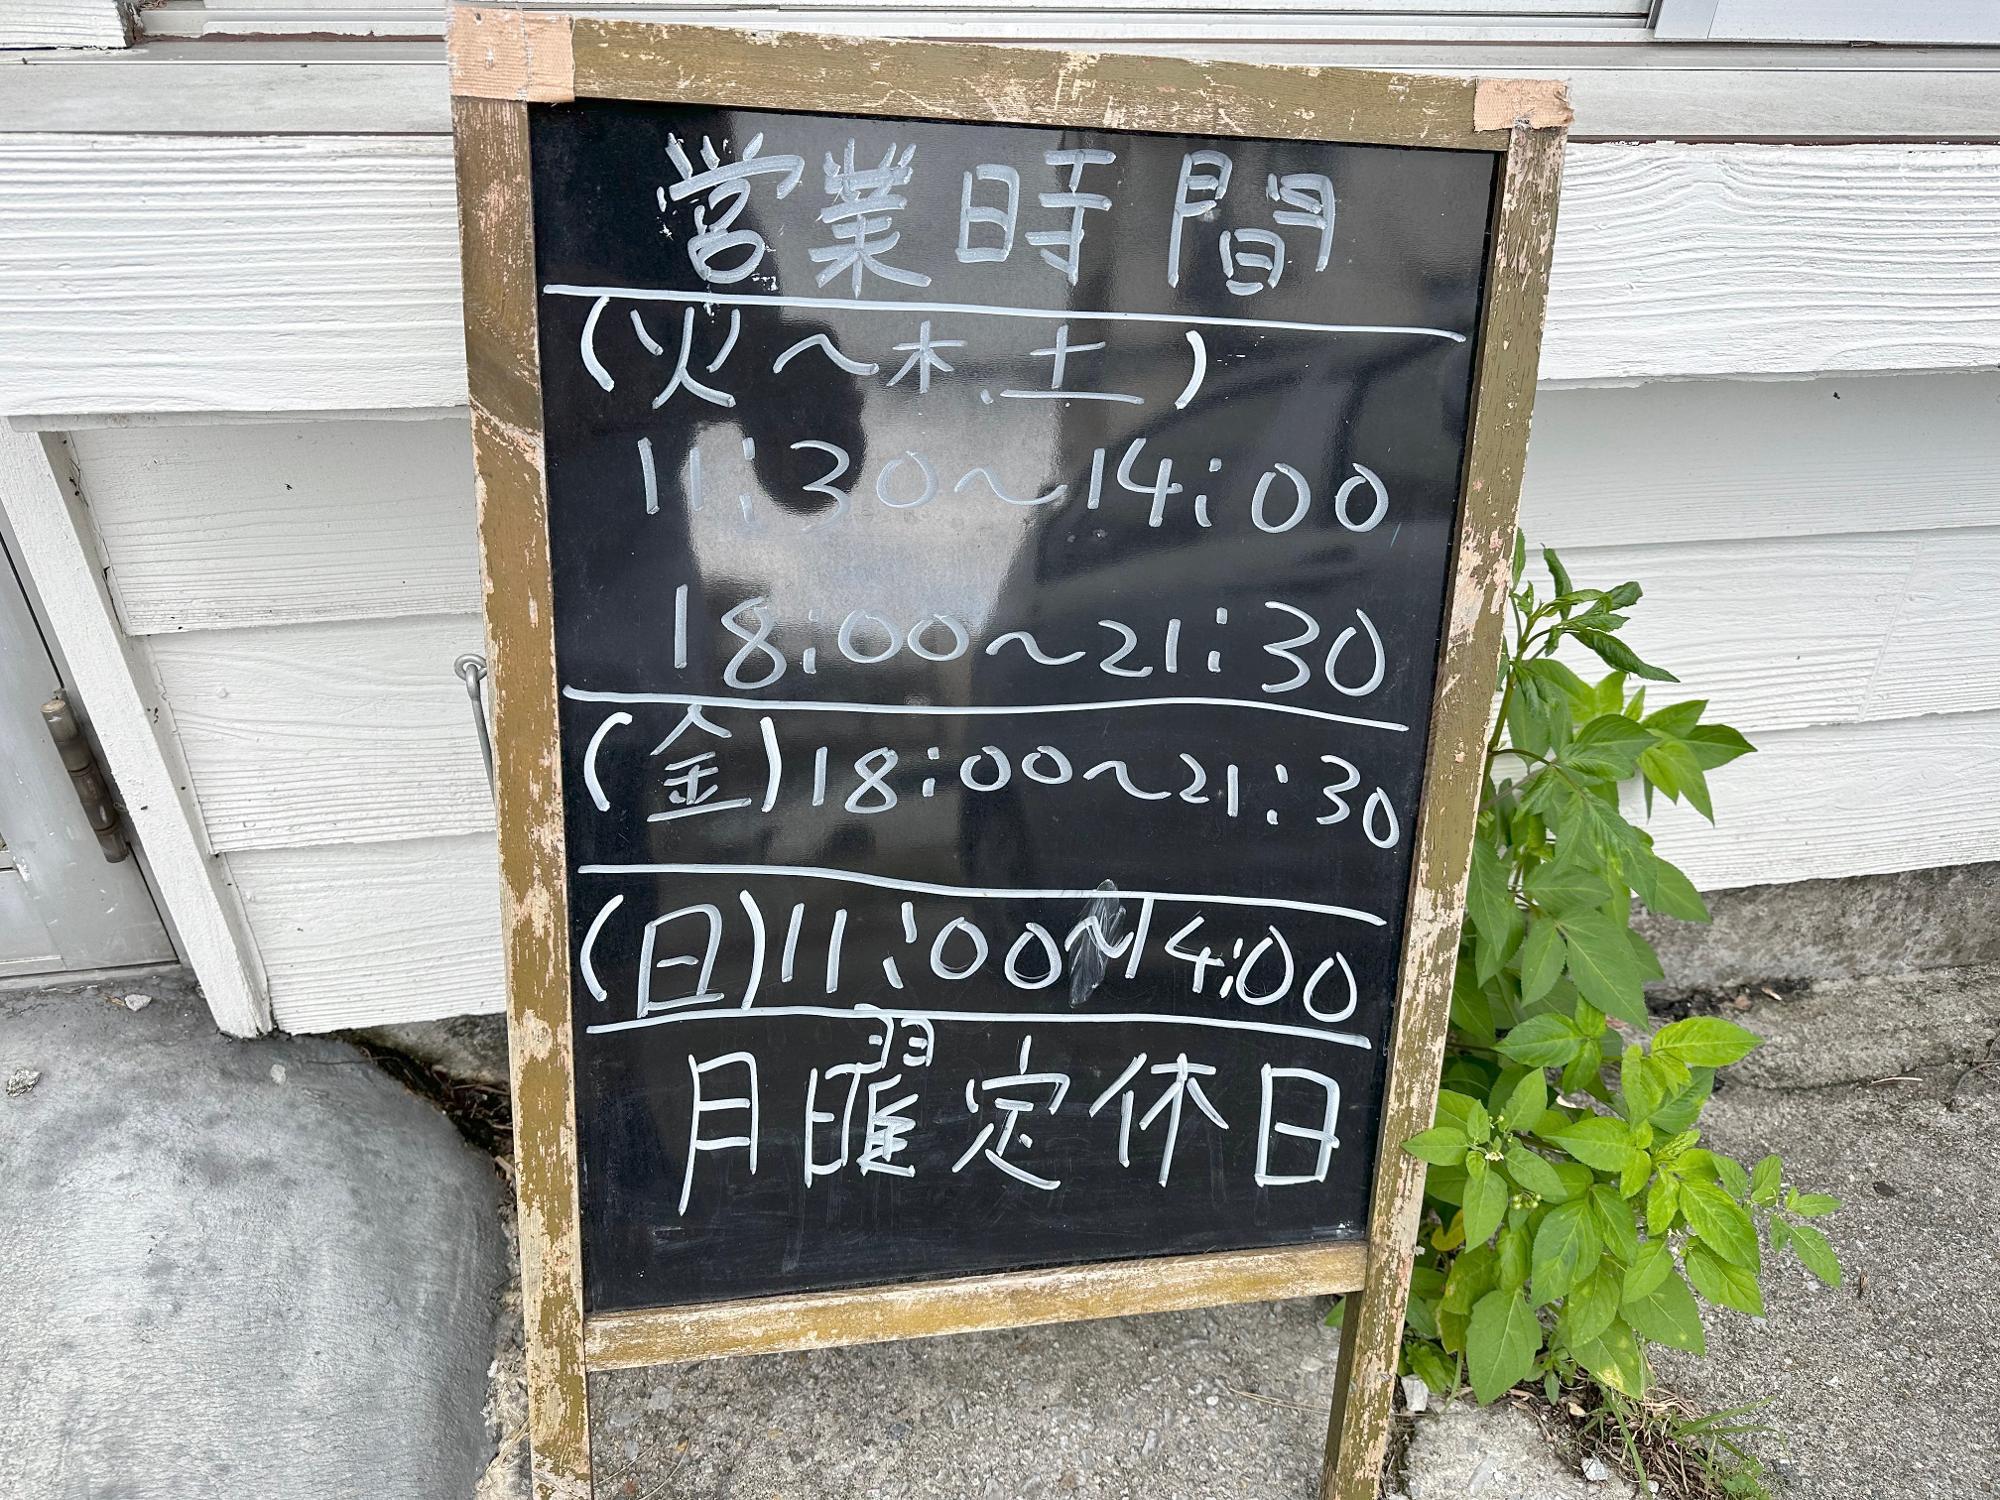 営業時間
(火〜木、土)
11:30〜14:00
18:00〜21:30
(金)18:00〜21:30
(日)11:00〜14:00
月曜定休日